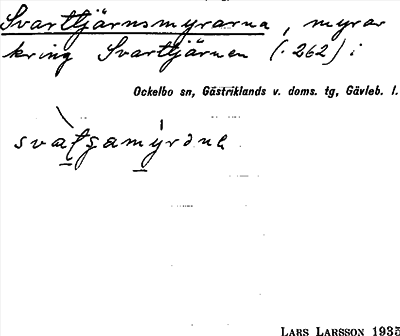 Svarttjärnsmyrarna, myrar
kring Svarttjärnen (·262) i
Ockelbo sn, Gästriklands v. doms. tg, Gävleb. l.
LARS LARSSON 1935